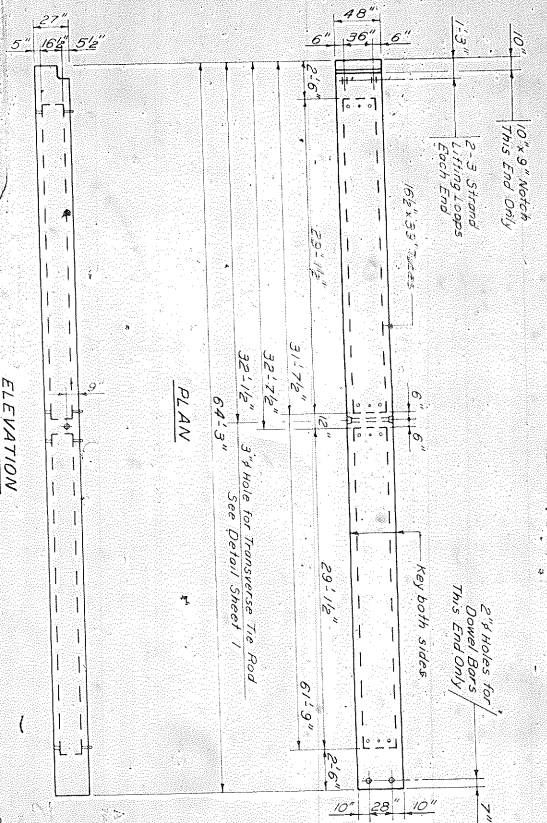 27"
5" 16½" 5½"
48"
6" 36" 6"
1'-3"
10"
10" x 9" Notch
This End Only
2-3 Strand
Lifting Loops
Each End
2'-6"
29'-1½"
31'-7½"
32'-7½"
32'-1½"
64'-3"
12"
6"
6"
3"φ Hole for Transverse Tie Rod
See Detail Sheet 1
PLAN
Key both sides
2"φ Holes for
Dowel Bars
This End Only
29'-1½"
61'-9"
2'-6"
10" 28" 10"
7"
9"
ELEVATION